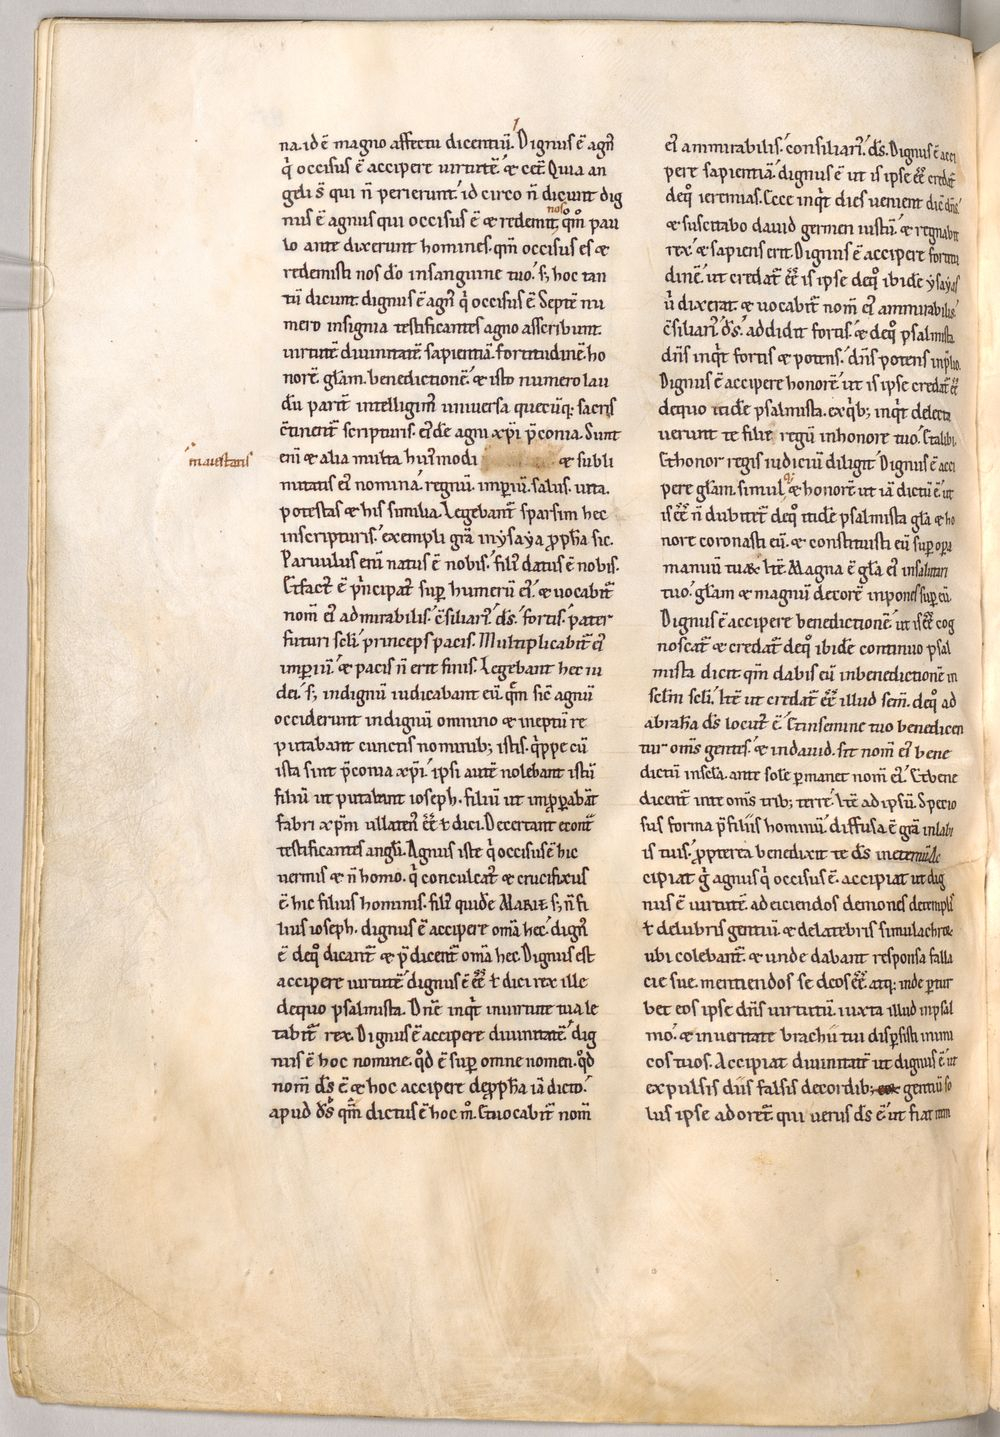 na. id ē magno affectu dicentiū. Dignus ē agn̄
q̇ occisus ē accipere virtutē. & cet̄. Quia an
geli s̄ qui n̄ perierunt. id circo n̄ dicunt dig
nus ē agnus qui occisus ē & redemit nos. qm̄ pau
lo ante dixerunt homines. qm̄ occisus es &
redemisti nos dō in sanguine tuo. s; hoc tan
tū dicunt. dignus ē agn̄ q̇ occisus ē. Septē nu
mero insignia testificantes agno asscribunt.
virtutē divinitatē sapientiā. fortitudinē. ho
norē. glam̄. benedictionē. & isto numero lau
dū parit̄ intelligim̄ universa quecūq; sacris
c̄tinent̄ scripturis. ei᷒dē agni xp̄i p̄conia. Sunt
enī & alia multa hui᷒modi & subli
maiestatis
mitatis ei᷒ nomina. regnū. imp̄iū. salus. vita.
potestas & his similia. Legebant̄ sparsim hec
in scripturis. exempli grā in ysaya pp̄ha sic.
Parvulus enī natus ē nobis. fili᷒ datus ē nobis.
Et fact᷒ ē p̄ncipat᷒ sup̄ humerū ei᷒. & vocabit̄
nom̄ ei᷒ admirabilis. c̄siliari᷒. ds̄. fortis. pater
futuri scl̄i. princeps pacis. Multiplicabit̄ ei᷒
imp̄iū. & pacis n̄ erit finis. Legebant hec iu
dei. s; indignū iudicabant eū. qm̄ sic̄ agnū
occiderunt indignū omnino & ineptū re
putabant cunctis nominib; istis. q̇ppe cū
ista sint p̄conia xp̄i. ipsi autē nolebant istū
filiū ut putabant ioseph. filiū ut imp̄p̄abāt
fabri xp̄m ullaten᷒ ēē ł dici. Decertant econt̄
testificantes angl̄i. Agnus iste q̇ occisus ē hic
vermis & n̄ homo. q̇ conculcat᷒ & crucifixus
ē. hic filius hominis. fili᷒ quidē MARIE s; n̄ fi
lius ioseph. dignus ē accipere om̄a hec. dign᷒
ē deq̊ dicant̄ & p̄dicent̄ om̄a hec. Dignus est
accipere virtutē dignus ē ēē ł dici rex ille
de quo psalmista. Dn̄e inq̇t in virtute tua le
tabit̄ rex. Dignus ē accipere divinitatē. dig
nus ē hoc nomine. qd̄ ē sup̄ omne nomen. qd̄
nom̄ ds̄ ē & hoc accipere de pp̄ha iā dicto.
apud ds̄ qm̄ dictus ē hoc m̊. Et vocabit̄ nom̄
ei᷒ ammirabilis. consiliari᷒. ds̄. Dignus ē acci
pere sapientiā. dignus ē ut is ipse ēē credat̄
deq̊ ieremias. Ecce inq̇t dies venient dic̄ dn̄s.
& suscitabo david germen iustū. & regnabit
rex. & sapiens erit. Dignus ē accipere fortitu
dinē. ut credat̄ ēē is ipse deq̊ ibidē ysayas
ū dixerat. & vocabit̄ nom̄ ei᷒ ammirabilis.
c̄siliari᷒. ds̄. addidit fortis. & deq̊ psalmista
dn̄s inq̇t fortis & potens. dn̄s potens in p̄lio.
Dignus ē accipere honorē. ut is ipse credat̄ ēē
de quo itidē psalmista. ex q̇b; inq̇t delecta
verunt te filie regū in honore tuo. Et alibi.
Et honor regis iudiciū diligit. Dignus ē acci
pere glam̄. simul & honorē. ut iā dictū ē. ut
is ēē n̄ dubitet̄ deq̊ itidē psalmista gla & ho
nore coronasti eū. & constituisti eū sup̄ opa
manuū tuaꝝ. Itē. Magna ē gla ei᷒ in salutari
tuo. glam̄ & magnū decorē inpones sup̄ eū.
Dignus ē accipere benedictionē. ut is ēē cog
noscat̄ & credat̄ deq̊ ibidē continuo psal
mista dicit qm̄ dabis eū in benedictionē in
sclm̄ scl̄i. Itē ut credat̄ ēē illud sem̄. deq̊ ad
abrahā ds̄ locut᷒ ē. Et in semine tuo benedicen
tur om̄s gentes. & in david. sit nom̄ ei᷒ bene
dictū in scl̄a. ante solē p̄manet nom̄ ei᷒. Et bene
dicent̄ in te om̄s trib; terre. Itē ad ipsū. Specio
sus forma p̄ filiis hominū. diffusa ē grā in labi
is tuis. ppterea benedixit te ds̄ in eternū. Ac
cipiat ḡ agnus q̇ occisus ē. accipiat ut dig
nus ē virtutē. ad eiciendos demones de templis
ł delubris gentiū. & de latebris simulachroꝝ
ubi colebant̄. & unde dabant responsa falla
cie sue. mentiendos se deos ēē. atq; inde p̄tur
bet eos ipse dn̄s virtutū. iuxta illud in psal
mo. & in veritate brachii tui disp̄sisti inimi
cos tuos. Accipiat divinitatē ut dignus ē. ut
expulsis diis falsis de cordib; gentiū so
lus ipse adoret̄. qui verus ds̄ ē. ut fiat